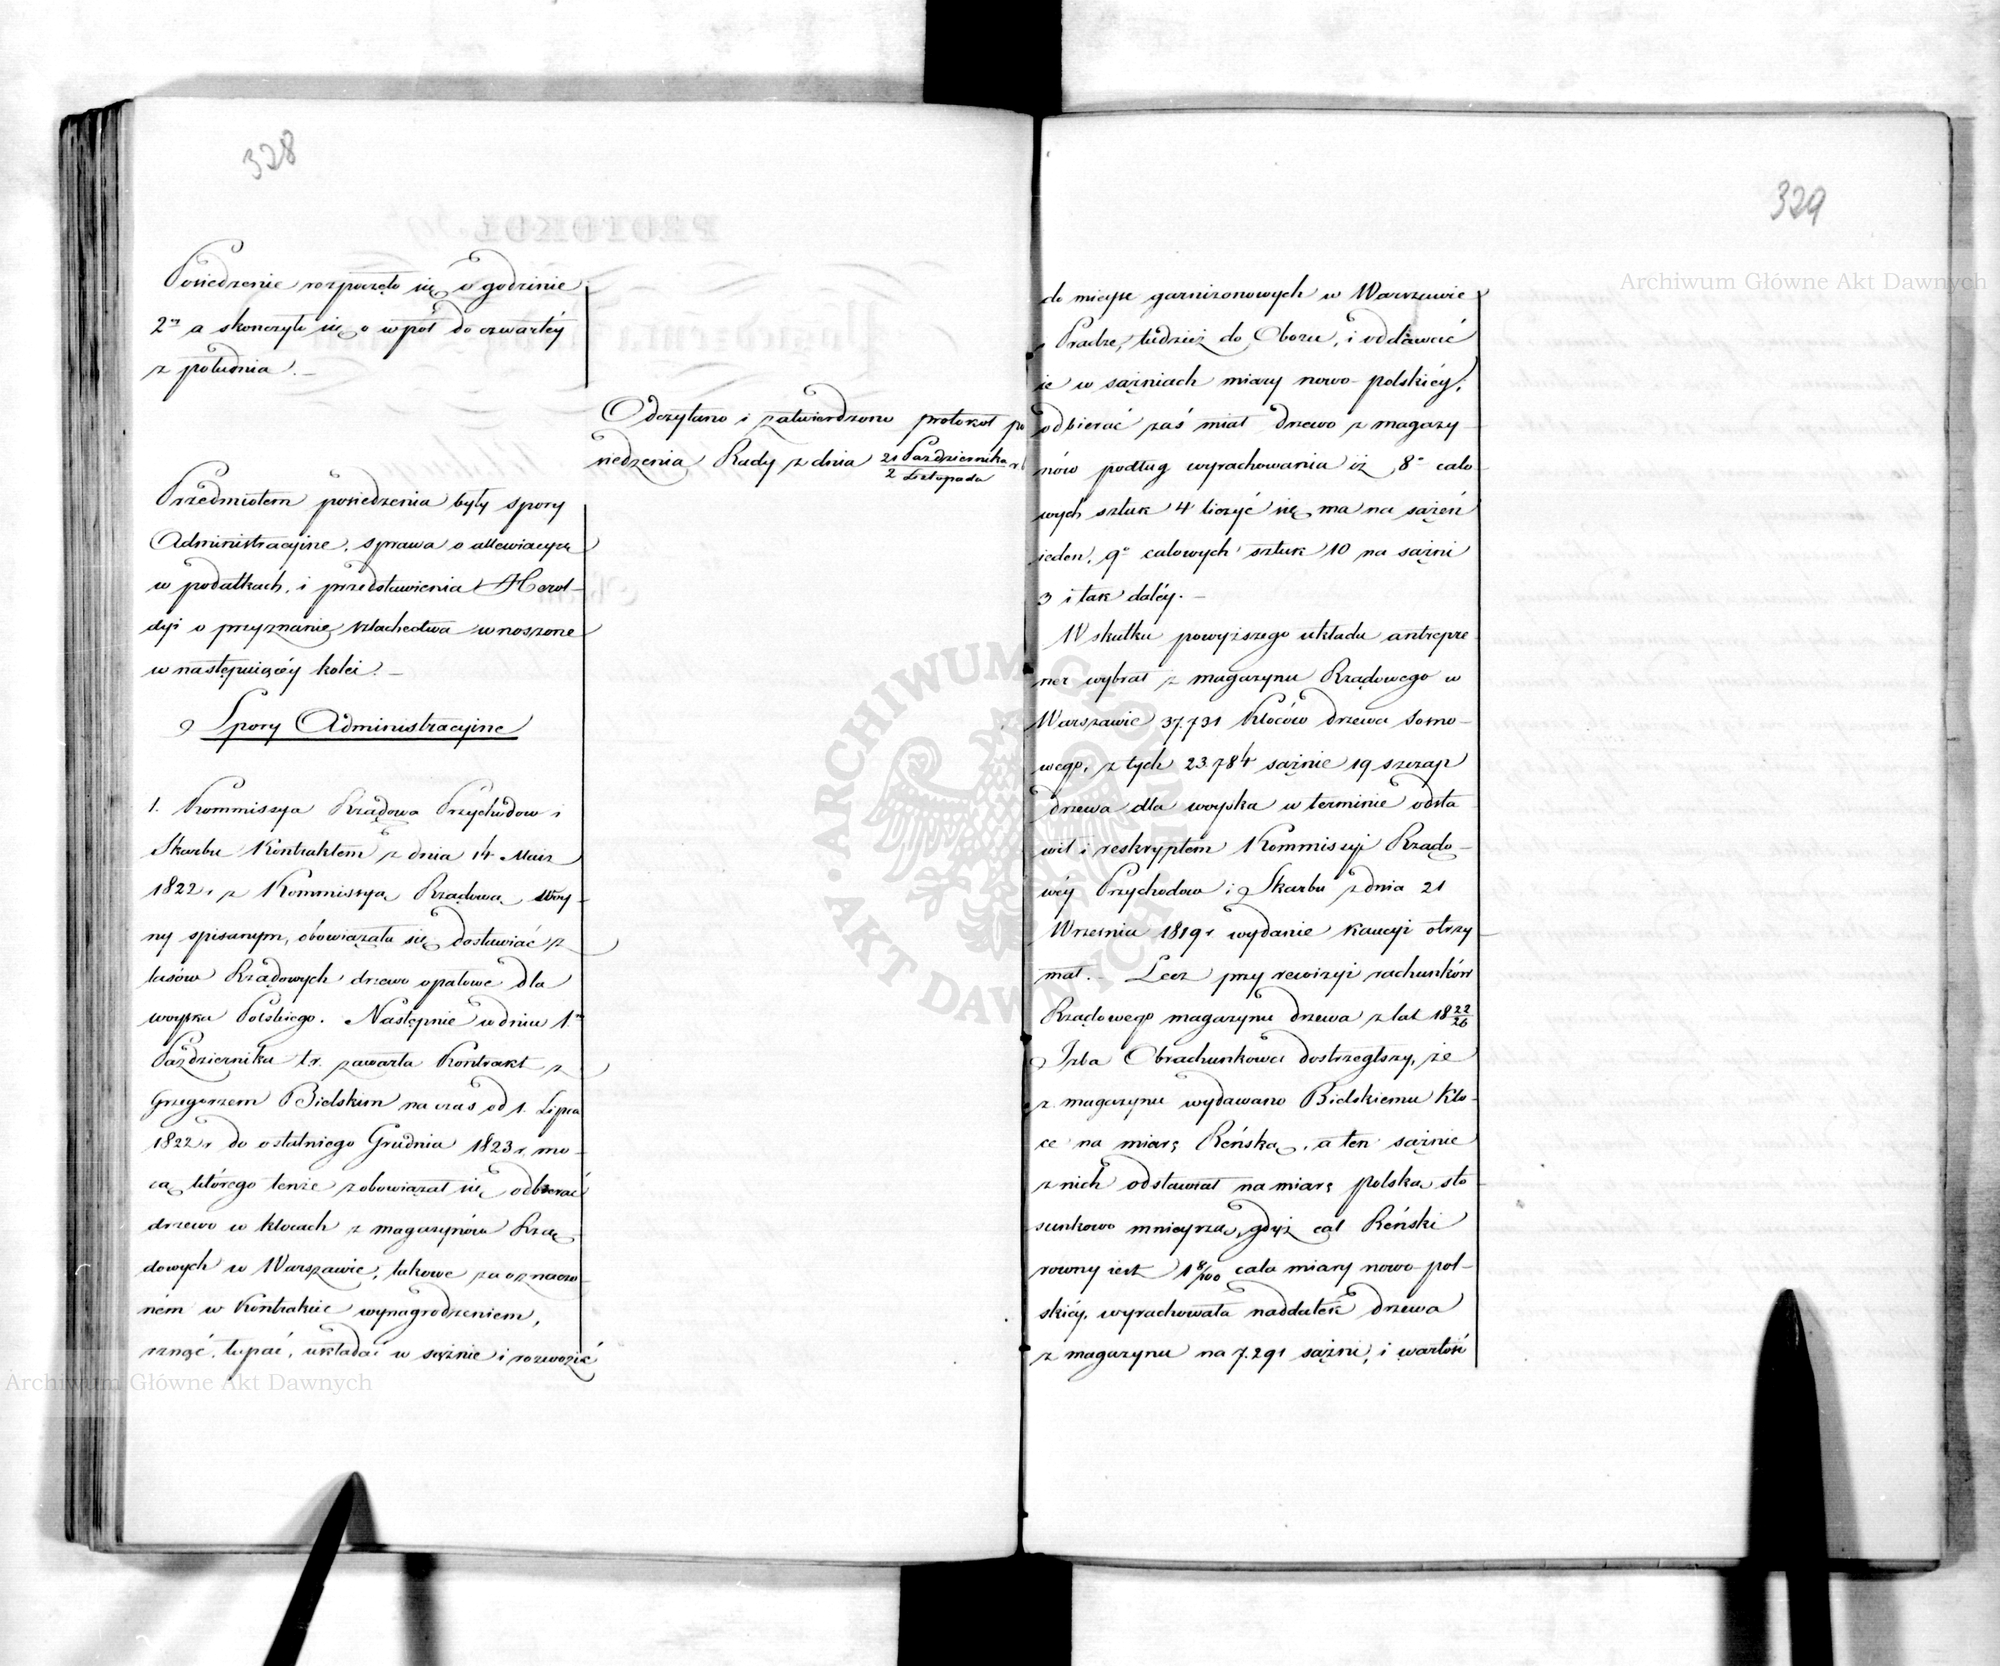 328
Posiedzenie rozpoczęło się o godzinie
2ey a skonczyło się o w pół do czwartéy
z południa. —
Odczytano i zatwierdzono protokoł po
siedzenia Rady z dnia 21 Października / 2 Listopada r. b
Przedmiotem posiedzenia były spory
Administracyjne, sprawa o
w podatkach, i przedstawienia Herol-
dyi o przyznanie szlachectwa wnoszone
w następuiącéy kolei. —
Spory Administracyine
1. Kommissya Rządowa Przychodow i
Skarbu Kontraktem z dnia 14 Maia
1822 r z Kommissyą Rządową Woy-
ny spisanym, obowiązała się dostawiać z
lasów Rządowych drzewo opałowe dla
woyska Polskiego. Następnie w dniu 1.
Października t. r. zawarła Kontrakt z
Grzegorzem Bielskim na czas od 1. Lipca
1822 r do ostatniego Grudnia 1823 r. mo-
cą którego tenże zobowiązał się odbierać
drzewo w klocach z magazynów Rzą
dowych w Warszawie, takowe za oznaczo-
ném w Kontrakcie wynagrodzeniem,
rznąć, łupać, układać w sążnie i rozwozić
329
do mieysc garnizonowych w Warszawie
i Pradze, tudzież do Obozu, i oddawać
ie w sążniach miary nowo-polskiéy,
odbierać zaś miał drzewo z magazy
nów podług wyrachowania iż 8o calo-
wych sztuk 4 liczyć się ma na sążeń
ieden, 9o calowych sztuk 10 na sążni
3 i tak daléy. —
W skutku powyższego układu antrepre
ner wybrał z magazynu Rządowego w
Warszawie 37.731 Kloców drzewa sosno-
wego, z tych 23.784 sążnie 19 szczap
drzewa dla woyska w terminie odsta
wił i reskryptem Kommissyi Rządo-
wéy Przychodow i Skarbu z dnia 21
Września 1819 r wydanie Kaucyi otrzy
mał. — Lecz przy rewizyi rachunków
Rządowego magazynu drzewa z lat 18 22/26
Izba Obrachunkowa dostrzegłszy, że
z magazynu wydawano Bielskiemu Klo-
ce na miarę Reńską, a ten sążnie
z nich odstawiał na miarę polską sto
sunkowo mnieyszą, gdyż cal Reński
rowny iest 1 8/100 cala miary nowo-pol-
skiéy, wyrachowała naddatek drzewa
z magazynu na 7.291 sążni, i wartość
Archiwum Główne Akt Dawnych
Archiwum Główne Akt Dawnych
ARCHIWUM GŁÓWNE AKT DAWNYCH